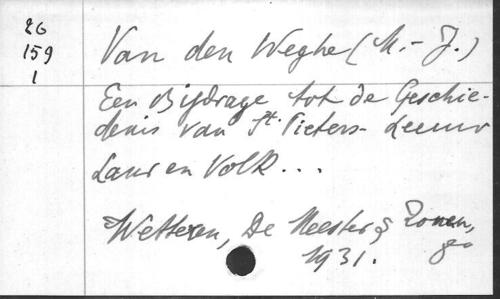 26
159
1
Van den Weghe (M.-J.)
Een Bijdrage tot de Geschie-
denis van St. Pieters-Leeuw
Land en Volk...
Wetteren, De Meester & Zonen,
1931.